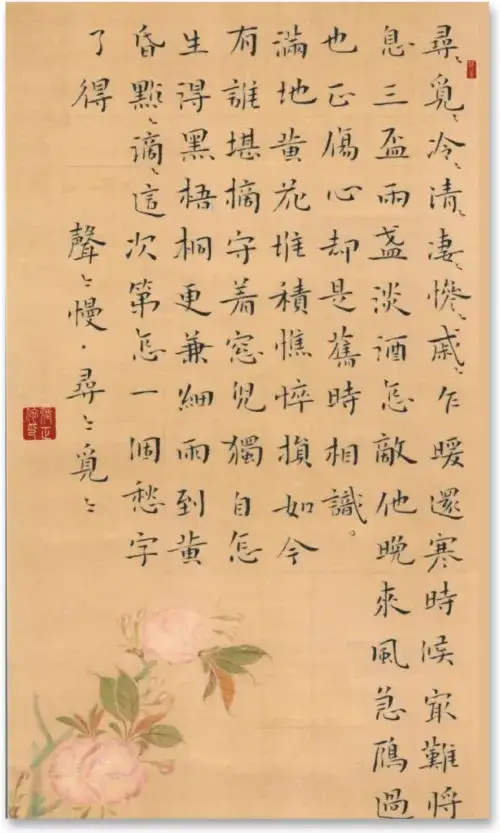 尋〻覓〻冷〻清〻凄〻慘〻戚〻乍暖還寒時候㝡難將
息三盃兩盞淡酒怎敵他晚來風急鴈過
也正傷心却是舊時相識。
滿地黄花堆積憔悴損如今
有誰堪摘守着窓兒獨自怎
生得黑梧桐更兼細雨到黄
昏點〻滴〻這次第怎一個愁字
了得
聲〻慢·尋〻覓〻